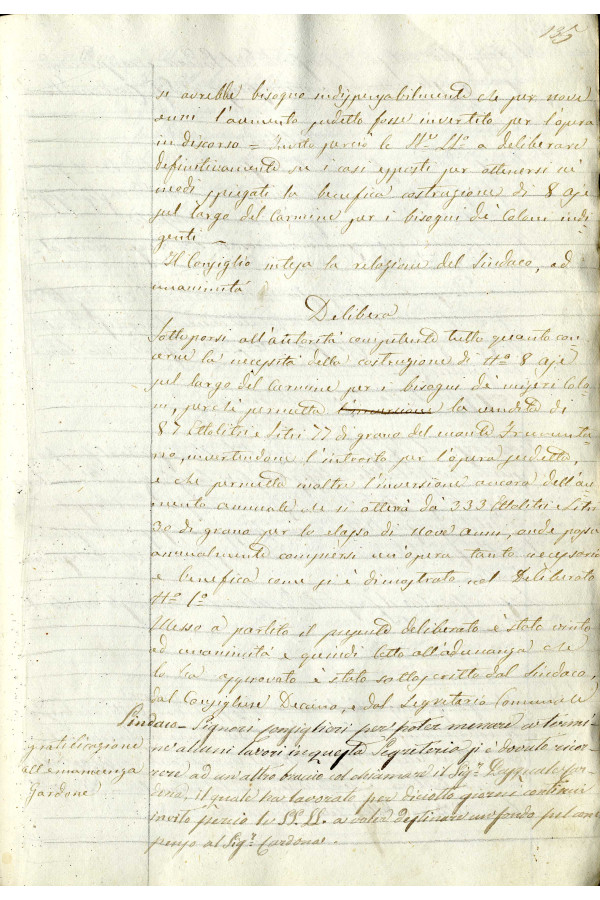 135
si avrebbe bisogno indispensabilmente che per nove
anni l'aumento sudetto fosse invertito per l'opera
in discorso = Invito perciò le SS.rie LL.e a deliberare
definitivamente su i casi esposti per ottenersi ne'
modi spiegati la benefica costruzione di 8 aje
sul largo del Carmine per i bisogni de' Coloni indi
genti =
Il Consiglio intesa la relazione del Sindaco, ad
unanimità
Delibera
Sottoporsi all'autorità competente tutto quanto con
cerne la necessità della costruzione di N.o 8 aje
sul largo del Carmine per i bisogni de' miseri Colo
ni, perchè permetta la vendita di
87 Ettolitri e Litri 77 di grano del monte Frumenta
rio, invertendone l'introito per l'opera sudetta,
e che permetta inoltre l'inversione ancora dell'au
mento annuale che si otterrà da' 333 Ettolitri e Litri
30 di grano per lo elasso di nove anni, onde possa
annualmente compiersi un'opera tanto necessaria
e benefica come si è dimostrato nel Deliberato
N.o 1.o
Messo a partito il presente deliberato è stato vinto
ad unanimità e quindi letto all'adunanza che
lo ha approvato è stato sottoscritto dal Sindaco,
dal Consigliere Decano, e dal Segretario Comunale
Sindaco = Signori consiglieri per poter menare a termi
ne alcuni lavori in questa Segreteria si è dovuto ricor
rere ad un altro braccio col chiamare il Sig.r Pasquale Car
dona, il quale ha lavorato per diciotto giorni continui
invito perciò le SS. LL. a voler destinare un fondo pel com
penso al Sig.r Cardona.
gratificazione
all'amanuense
Cardone